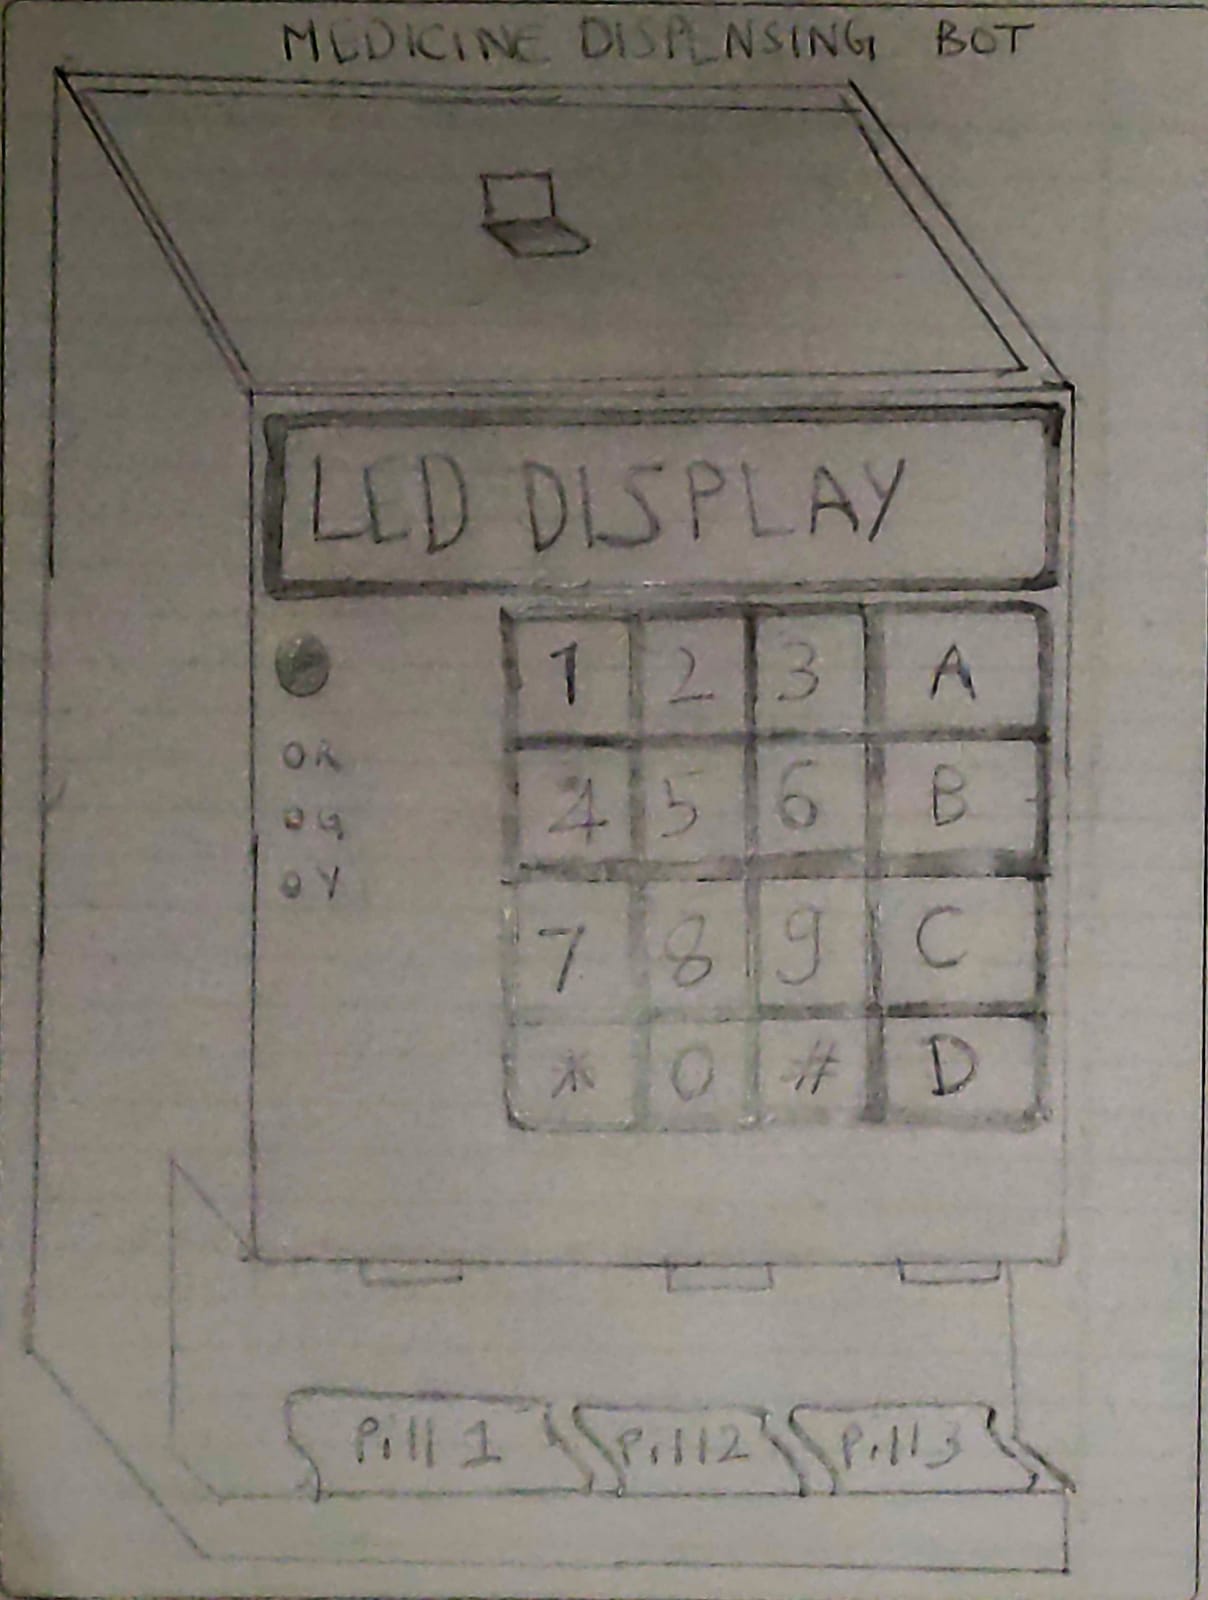 MEDICINE DISPENSING BOT
LED DISPLAY
1 2 3 A
R
4 5 6 B
G
Y
7 8 9 C
* 0 # D
Pill 1 Pill 2 Pill 3